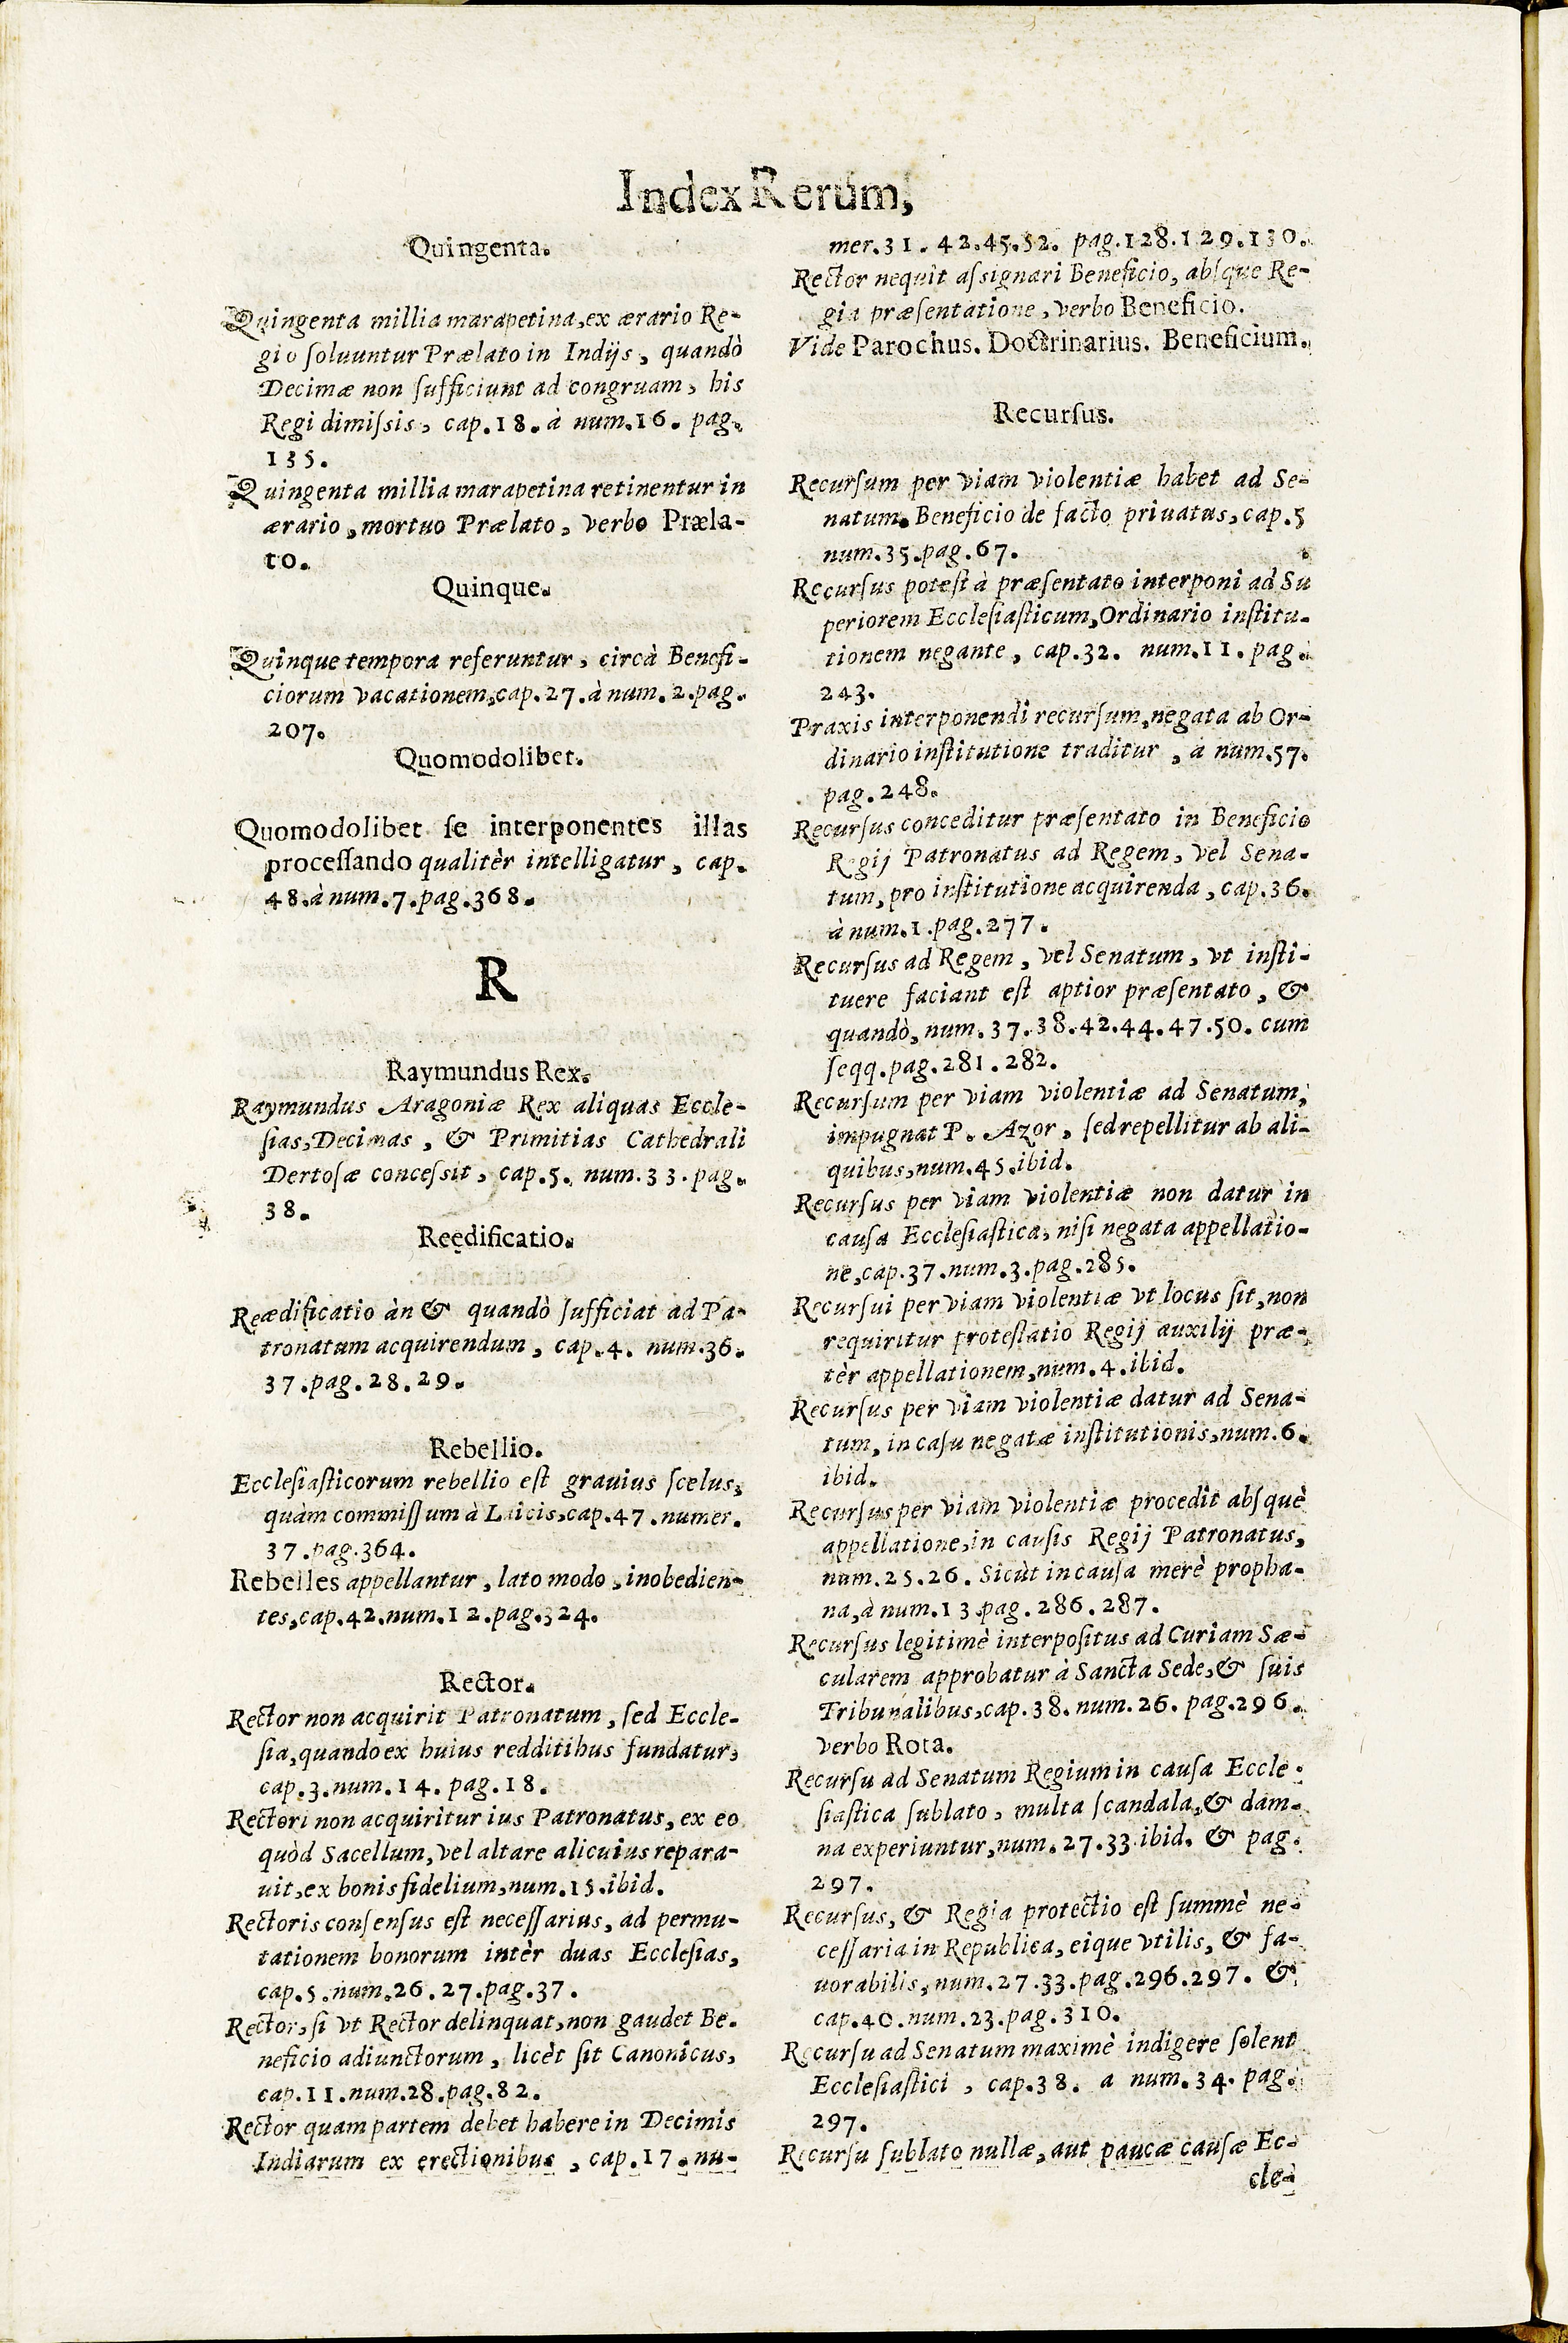 Index Rerum,
Quingenta.
Quingenta millia marapetina, ex ærario Re-
gio ſoluuntur Prælato in Indijs, quandò
Decimæ non ſufficiunt ad congruam, his
Regi dimiſsis, cap.18. à num.16. pag.
135.
Quingenta millia marapetina retinentur in
ærario, mortuo Prælato, verbo Præla-
to.
Quinque.
Quinque tempora referuntur, circà Benefi-
ciorum vacationem, cap.27. à num.2. pag.
207.
Quomodolibet.
Quomodolibet ſe interponentes illas
proceſſando qualitèr intelligatur, cap.
48. à num.7. pag.368.
R
Raymundus Rex.
Raymundus Aragoniæ Rex aliquas Eccle-
ſias, Decimas, & Primitias Cathedrali
Dertoſæ conceſsit, cap.5. num.33. pag.
38.
Reędificatio.
Reædificatio àn & quandò ſufficiat ad Pa-
tronatum acquirendum, cap.4. num.36.
37. pag.28.29.
Rebellio.
Eccleſiaſticorum rebellio eſt grauius ſcelus,
quàm commiſſum à Laicis, cap.47. numer.
37. pag.364.
Rebelles appellantur, lato modo, inobedien-
tes, cap.42. num.12. pag.324.
Rector.
Rector non acquirit Patronatum, ſed Eccle-
ſia, quando ex huius redditibus fundatur,
cap.3. num.14. pag.18.
Rectori non acquiritur ius Patronatus, ex eo
quòd Sacellum, vel altare alicuius repara-
uit, ex bonis fidelium, num.15. ibid.
Rectoris conſenſus eſt neceſſarius, ad permu-
tationem bonorum intèr duas Eccleſias,
cap.5. num.26.27. pag.37.
Rector, ſi vt Rector delinquat, non gaudet Be-
neficio adiunctorum, licèt ſit Canonicus,
cap.11. num.28. pag.82.
Rector quam partem debet habere in Decimis
Indiarum ex erectionibus, cap.17. nu-
mer.31. 42.45.52. pag.128.129.130.
Rector nequit aſsignari Beneficio, abſque Re-
gia præſentatione, verbo Beneficio.
Vide Parochus. Doctrinarius. Beneficium.
Recurſus.
Recurſum per viam violentiæ habet ad Se-
natum. Beneficio de facto priuatus, cap.5
num.35. pag.67.
Recurſus poteſt à præſentato interponi ad Su
periorem Eccleſiaſticum, Ordinario inſtitu-
tionem negante, cap.32. num.11. pag.
243.
Praxis interponendi recurſum, negata ab Or-
dinario inſtitutione traditur, à num.57.
pag.248.
Recurſus conceditur præſentato in Beneficio
Regij Patronatus ad Regem, vel Sena-
tum, pro inſtitutione acquirenda, cap.36.
à num.1. pag.277.
Recurſus ad Regem, vel Senatum, vt inſti-
tuere faciant eſt aptior præſentato, &
quandò, num.37.38.42.44.47.50. cum
ſeqq. pag.281.282.
Recurſum per viam violentiæ ad Senatum,
impugnat P. Azor, ſed repellitur ab ali-
quibus, num.45. ibid.
Recurſus per viam violentiæ non datur in
cauſa Eccleſiaſtica, niſi negata appellatio-
ne, cap.37. num.3. pag.285.
Recurſui per viam violentiæ vt locus ſit, non
requiritur proteſtatio Regij auxilij præ-
tèr appellationem, num.4. ibid.
Recurſus per viam violentiæ datur ad Sena-
tum, in caſu negatæ inſtitutionis, num.6.
ibid.
Recurſus per viam violentiæ procedit abſquè
appellatione, in cauſis Regij Patronatus,
num.25.26. Sicùt in cauſa merè propha-
na, à num.13. pag.286.287.
Recurſus legitimè interpoſitus ad Curiam Sæ-
cularem approbatur à Sancta Sede, & ſuis
Tribunalibus, cap.38. num.26. pag.296.
verbo Rota.
Recurſu ad Senatum Regium in cauſa Eccle-
ſiaſtica ſublato, multa ſcandala, & dam-
na experiuntur, num.27.33. ibid. & pag.
297.
Recurſus, & Regia protectio eſt ſummè ne-
ceſſaria in Republica, eique vtilis, & fa-
uorabilis, num.27.33. pag.296.297. &
cap.40. num.23. pag.310.
Recurſu ad Senatum maximè indigere ſolent
Eccleſiaſtici, cap.38. a num.34. pag.
297.
Recurſu ſublato nullæ, aut paucæ cauſæ Ec-
cle-